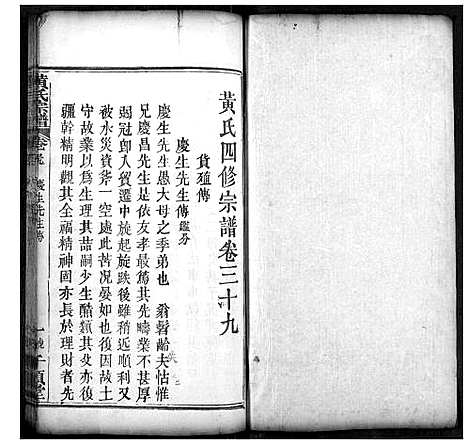 黃氏四修宗譜卷三十九
貨殖傳
慶生先生傳 鑑芬
慶生先生愚大母之季弟也 翁髫齡失怙惟
兄慶昌先生是依友孝最篤其先疇業不甚厚
弱冠卽入貿遷中旋起旋跌後雖稍近順境而
被水災資斧一空處此苦况晏如也後因故土
守故業以爲生理其喆嗣少生酷類其爻亦後
疆幹精明觀其全福精神固亦長於理財者先
黃氏宗譜
慶生先生傳
千頃堂